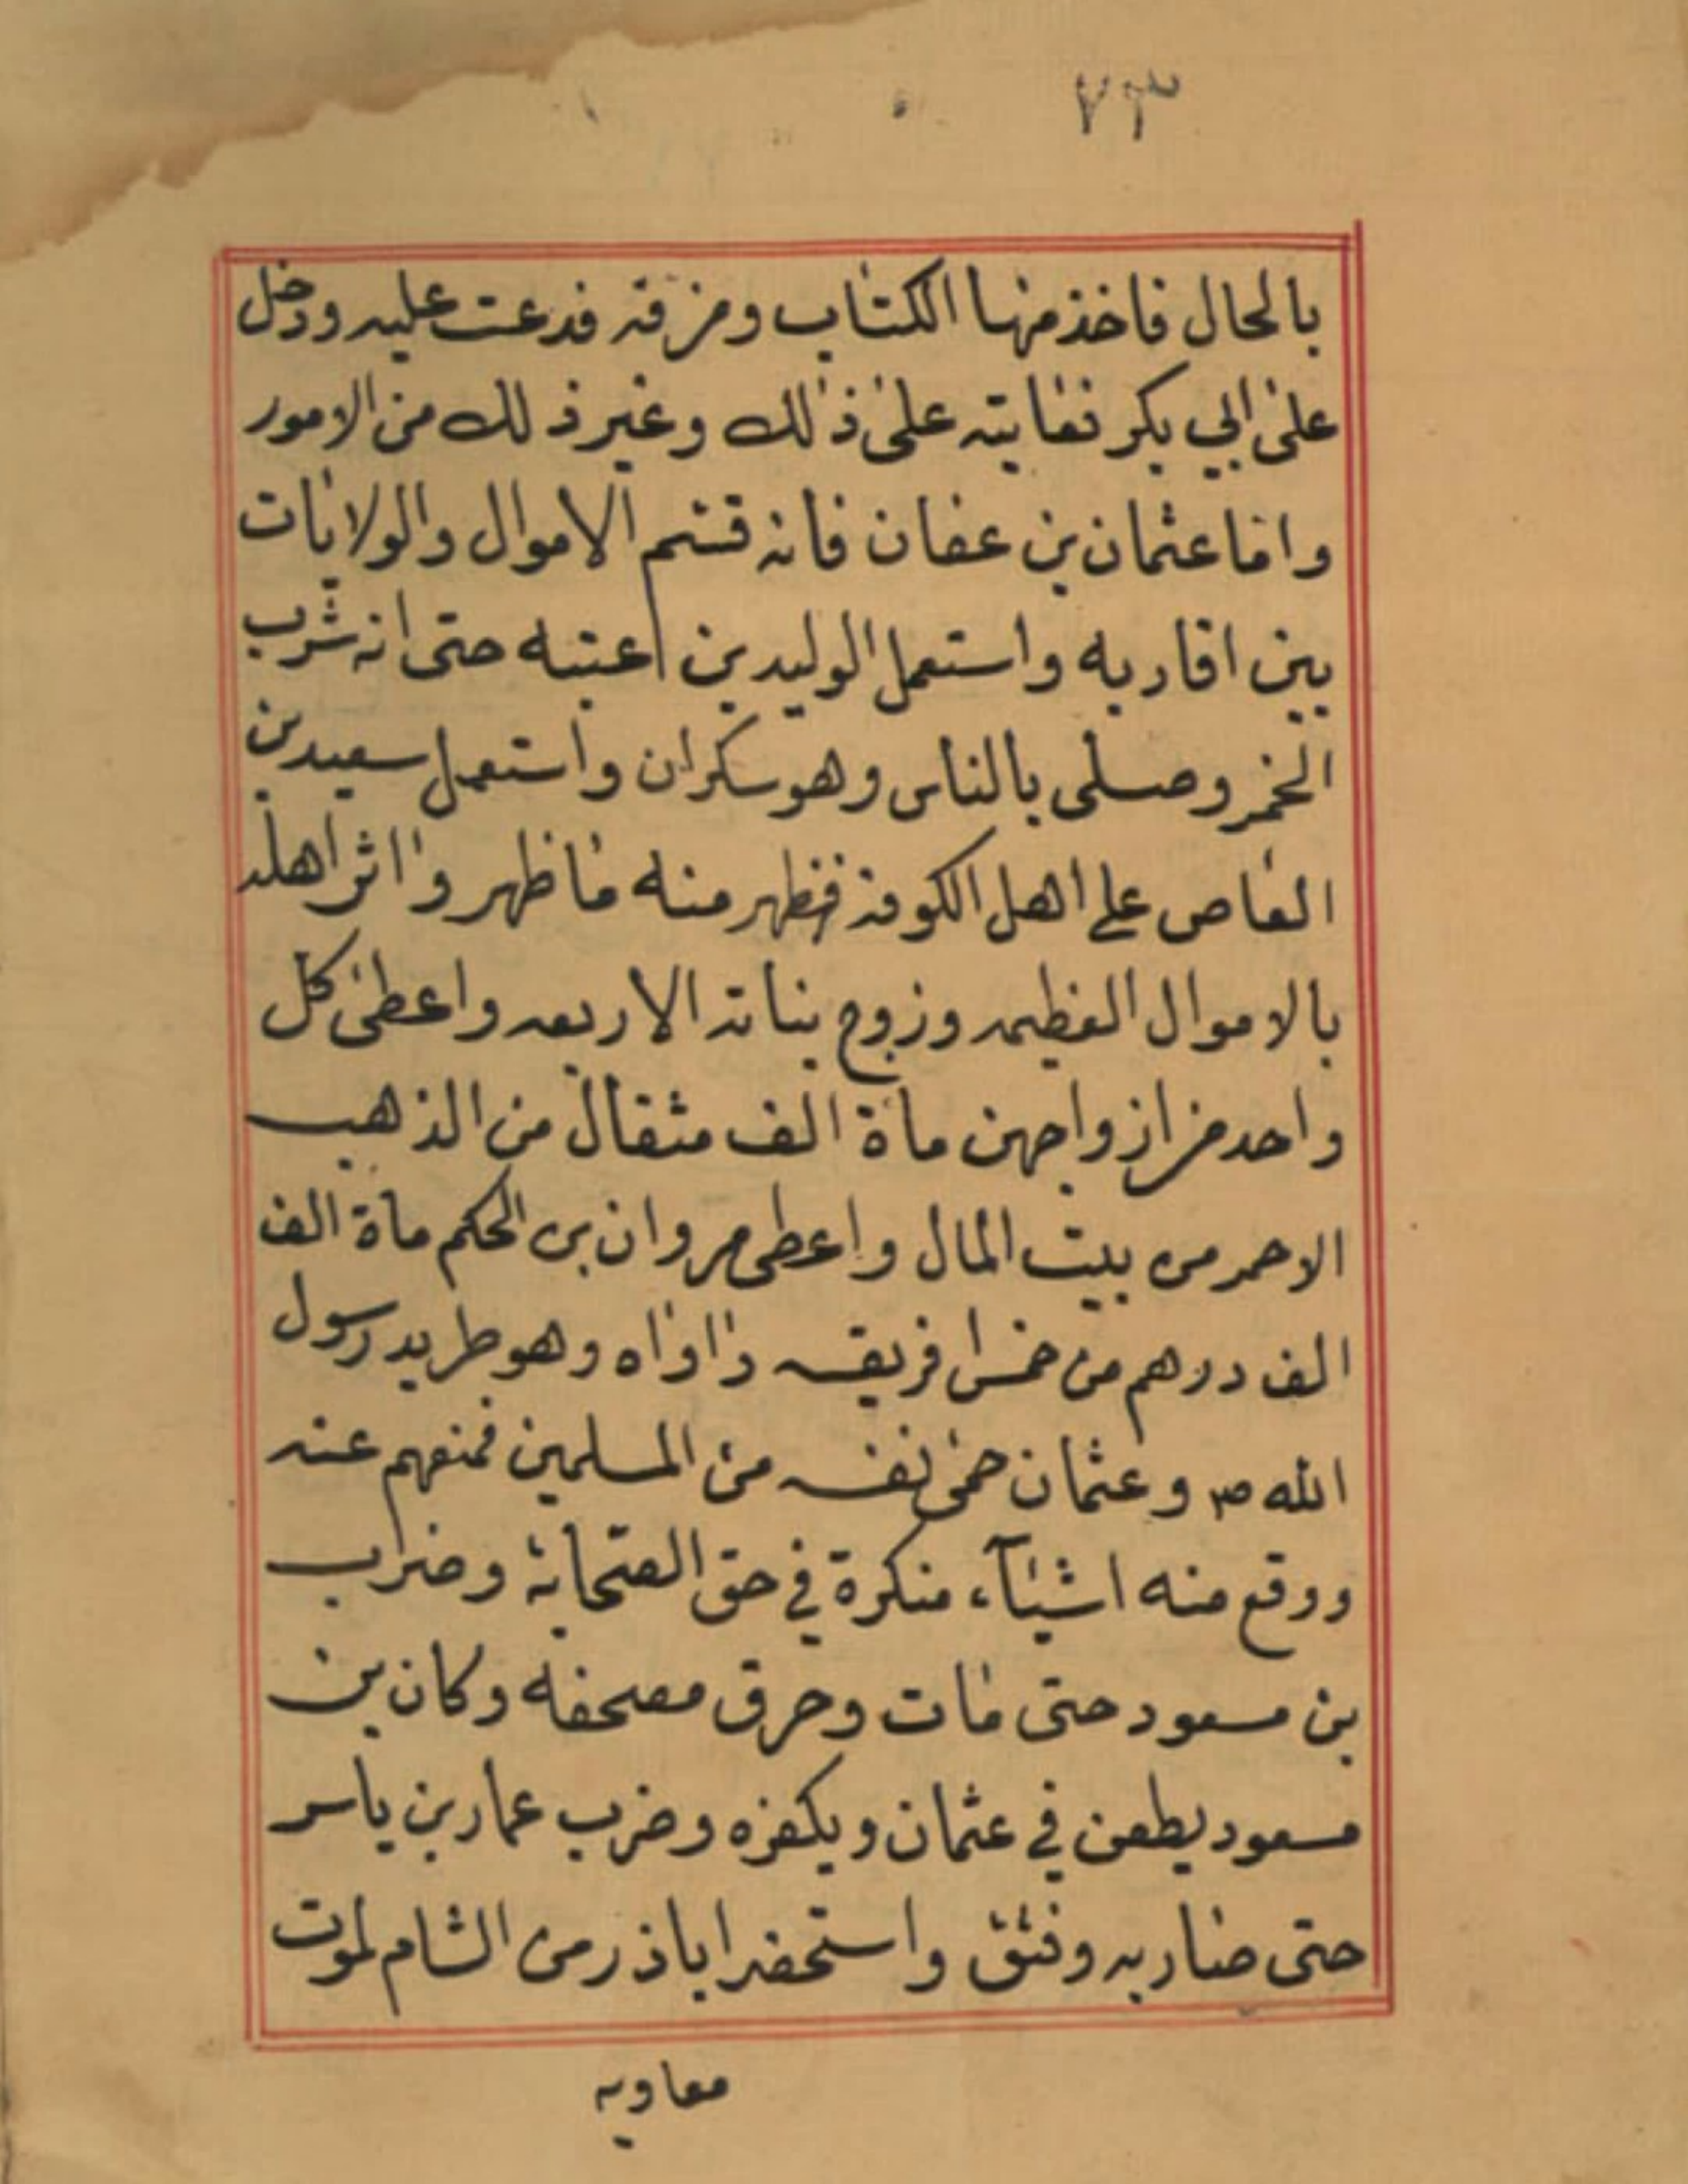 ٧٣
بالحال فاخذ منها الكتاب ومزقه فدعت عليه ودخل
على ابي بكر فعاتبه على ذلك وغير ذلك من الامور
واما عثمان بن عفان فانه قسم الاموال والولايات
بين اقاربه واستعمل الوليد بن اعتبه حتى انه شرب
الخمر وصلى بالناس وهو سكران واستعمل سعيد بن
العاص على اهل الكوفة فظهر منه ما ظهر واثر اهله
بالاموال العظيمه وزوج بناته الاربعه واعطى كل
واحد من ازواجهن مأة الف مثقال من الذهب
الاحمر من بيت المال واعطى مروان بن الحكم مأة الف
الف درهم من خمس افريقيه واواه وهو طريد رسول
الله ص وعثمان حمى نفسه من المسلمين فمنعهم عنه
ووقع منه اشيآء منكرة في حق الصحابة وضرب
بن مسعود حتى مات وحرق مصحفه وكان بن
مسعود يطعن في عثمان ويكفره وضرب عمار بن ياسر
حتى ضار به وفتق واستحضر اباذر من الشام لموت
معاويه